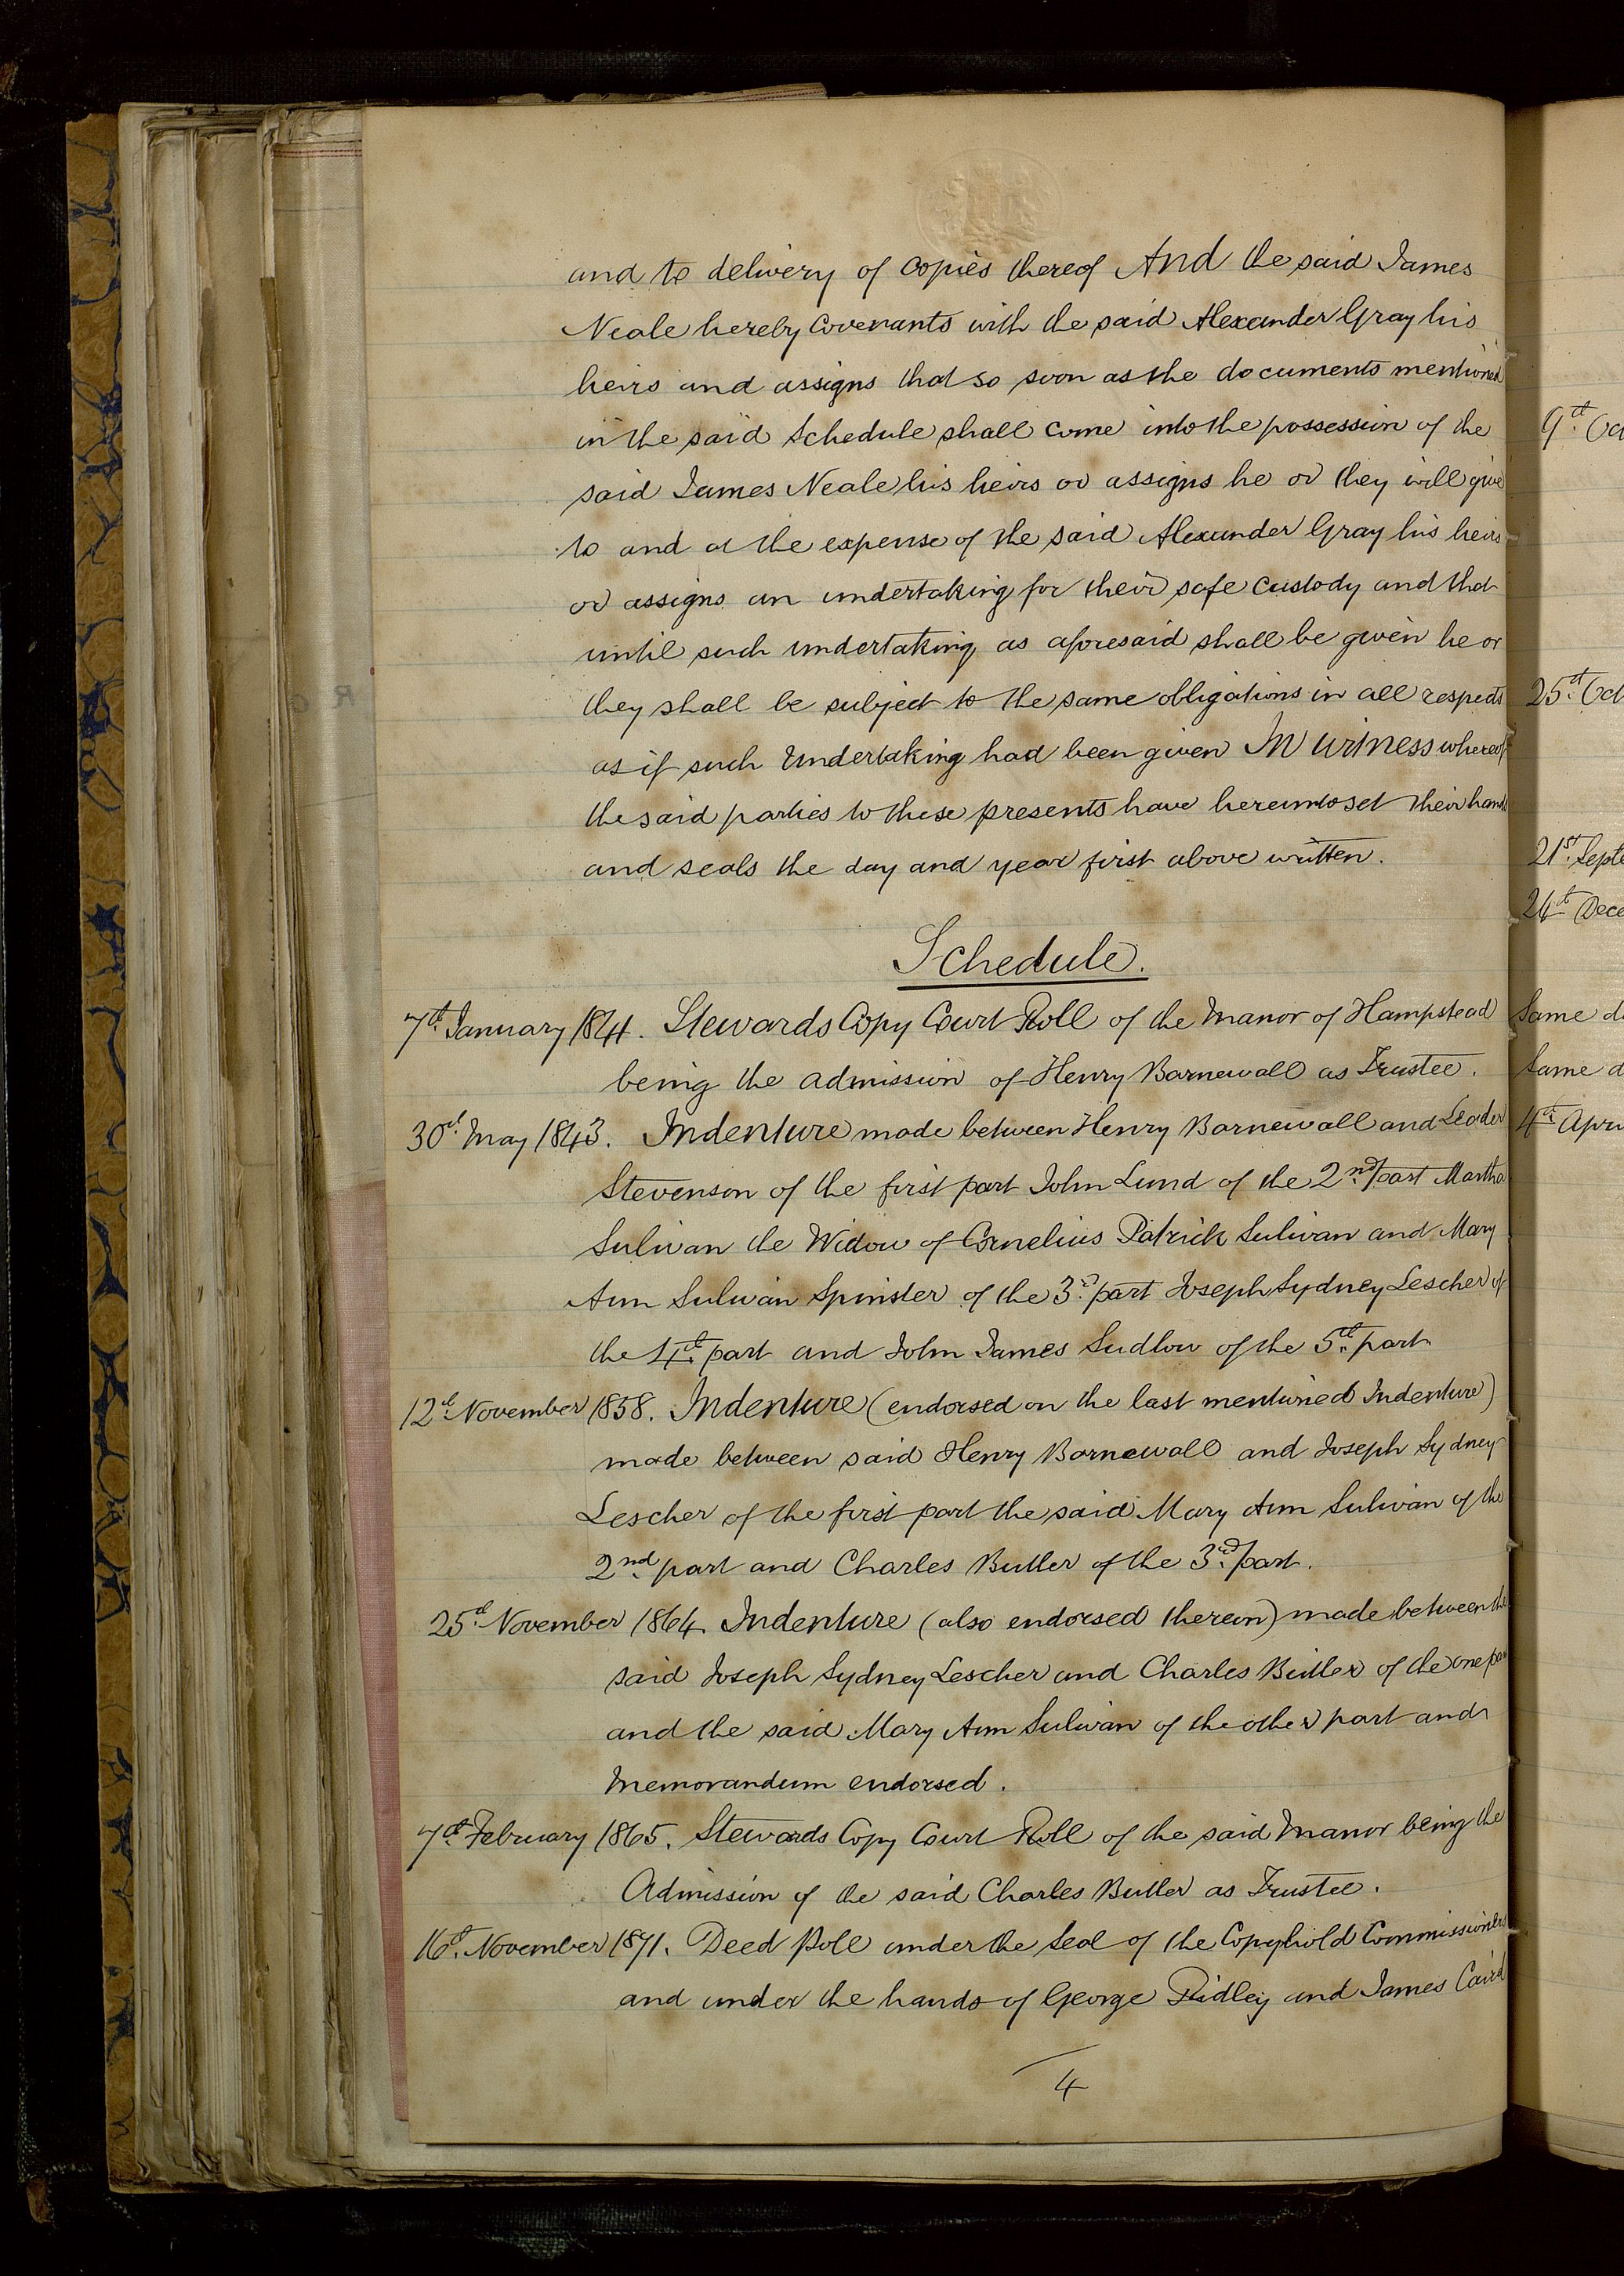 and to delivery of copies thereof And the said James
Neale hereby Covenants with the said Alexander Gray his
heirs and assigns that so soon as the documents mentioned
in the said Schedule shall come into the possession of the
said James Neale his heirs or assigns he or they will give
to and at the expense of the said Alexander Gray his heirs
or assigns an undertaking for their safe custody and that
until such undertaking as aforesaid shall be given he or
they shall be subject to the same obligations in all respects
as if such undertaking had been given In witness whereof
the said parties to these presents have hereunto set their hands
and seals the day and year first above written.
Schedule.
7th January 1841. Stewards Copy Court Roll of the Manor of Hampstead
being the admission of Henry Barnewall as Trustee.
30th May 1843. Indenture made between Henry Barnewall and Leader
Stevenson of the first part John Lund of the 2nd part Martha
Sulivan the Widow of Cornelius Patrick Sulivan and Mary
Ann Sulivan Spinster of the 3rd part Joseph Sydney Lescher of
the 4th part and John James Sudlow of the 5th part
12th November 1858. Indenture (endorsed on the last mentioned Indenture)
made between said Henry Barnewall and Joseph Sydney
Lescher of the first part the said Mary Ann Sulivan of the
2nd part and Charles Butler of the 3rd part.
25th November 1864. Indenture (also endorsed thereon) made between the
said Joseph Sydney Lescher and Charles Butler of the one part
and the said Mary Ann Sulivan of the other part and
Memorandum endorsed.
7th February 1865. Stewards Copy Court Roll of the said Manor being the
Admission of the said Charles Butler as Trustee.
16th November 1871. Deed Poll under the Seal of the Copyhold Commissioners
and under the hands of George Ridley and James Caird
4
9th Oct
25th Oct
21st Septe
24th Dece
Same d
Same d
4th Apri